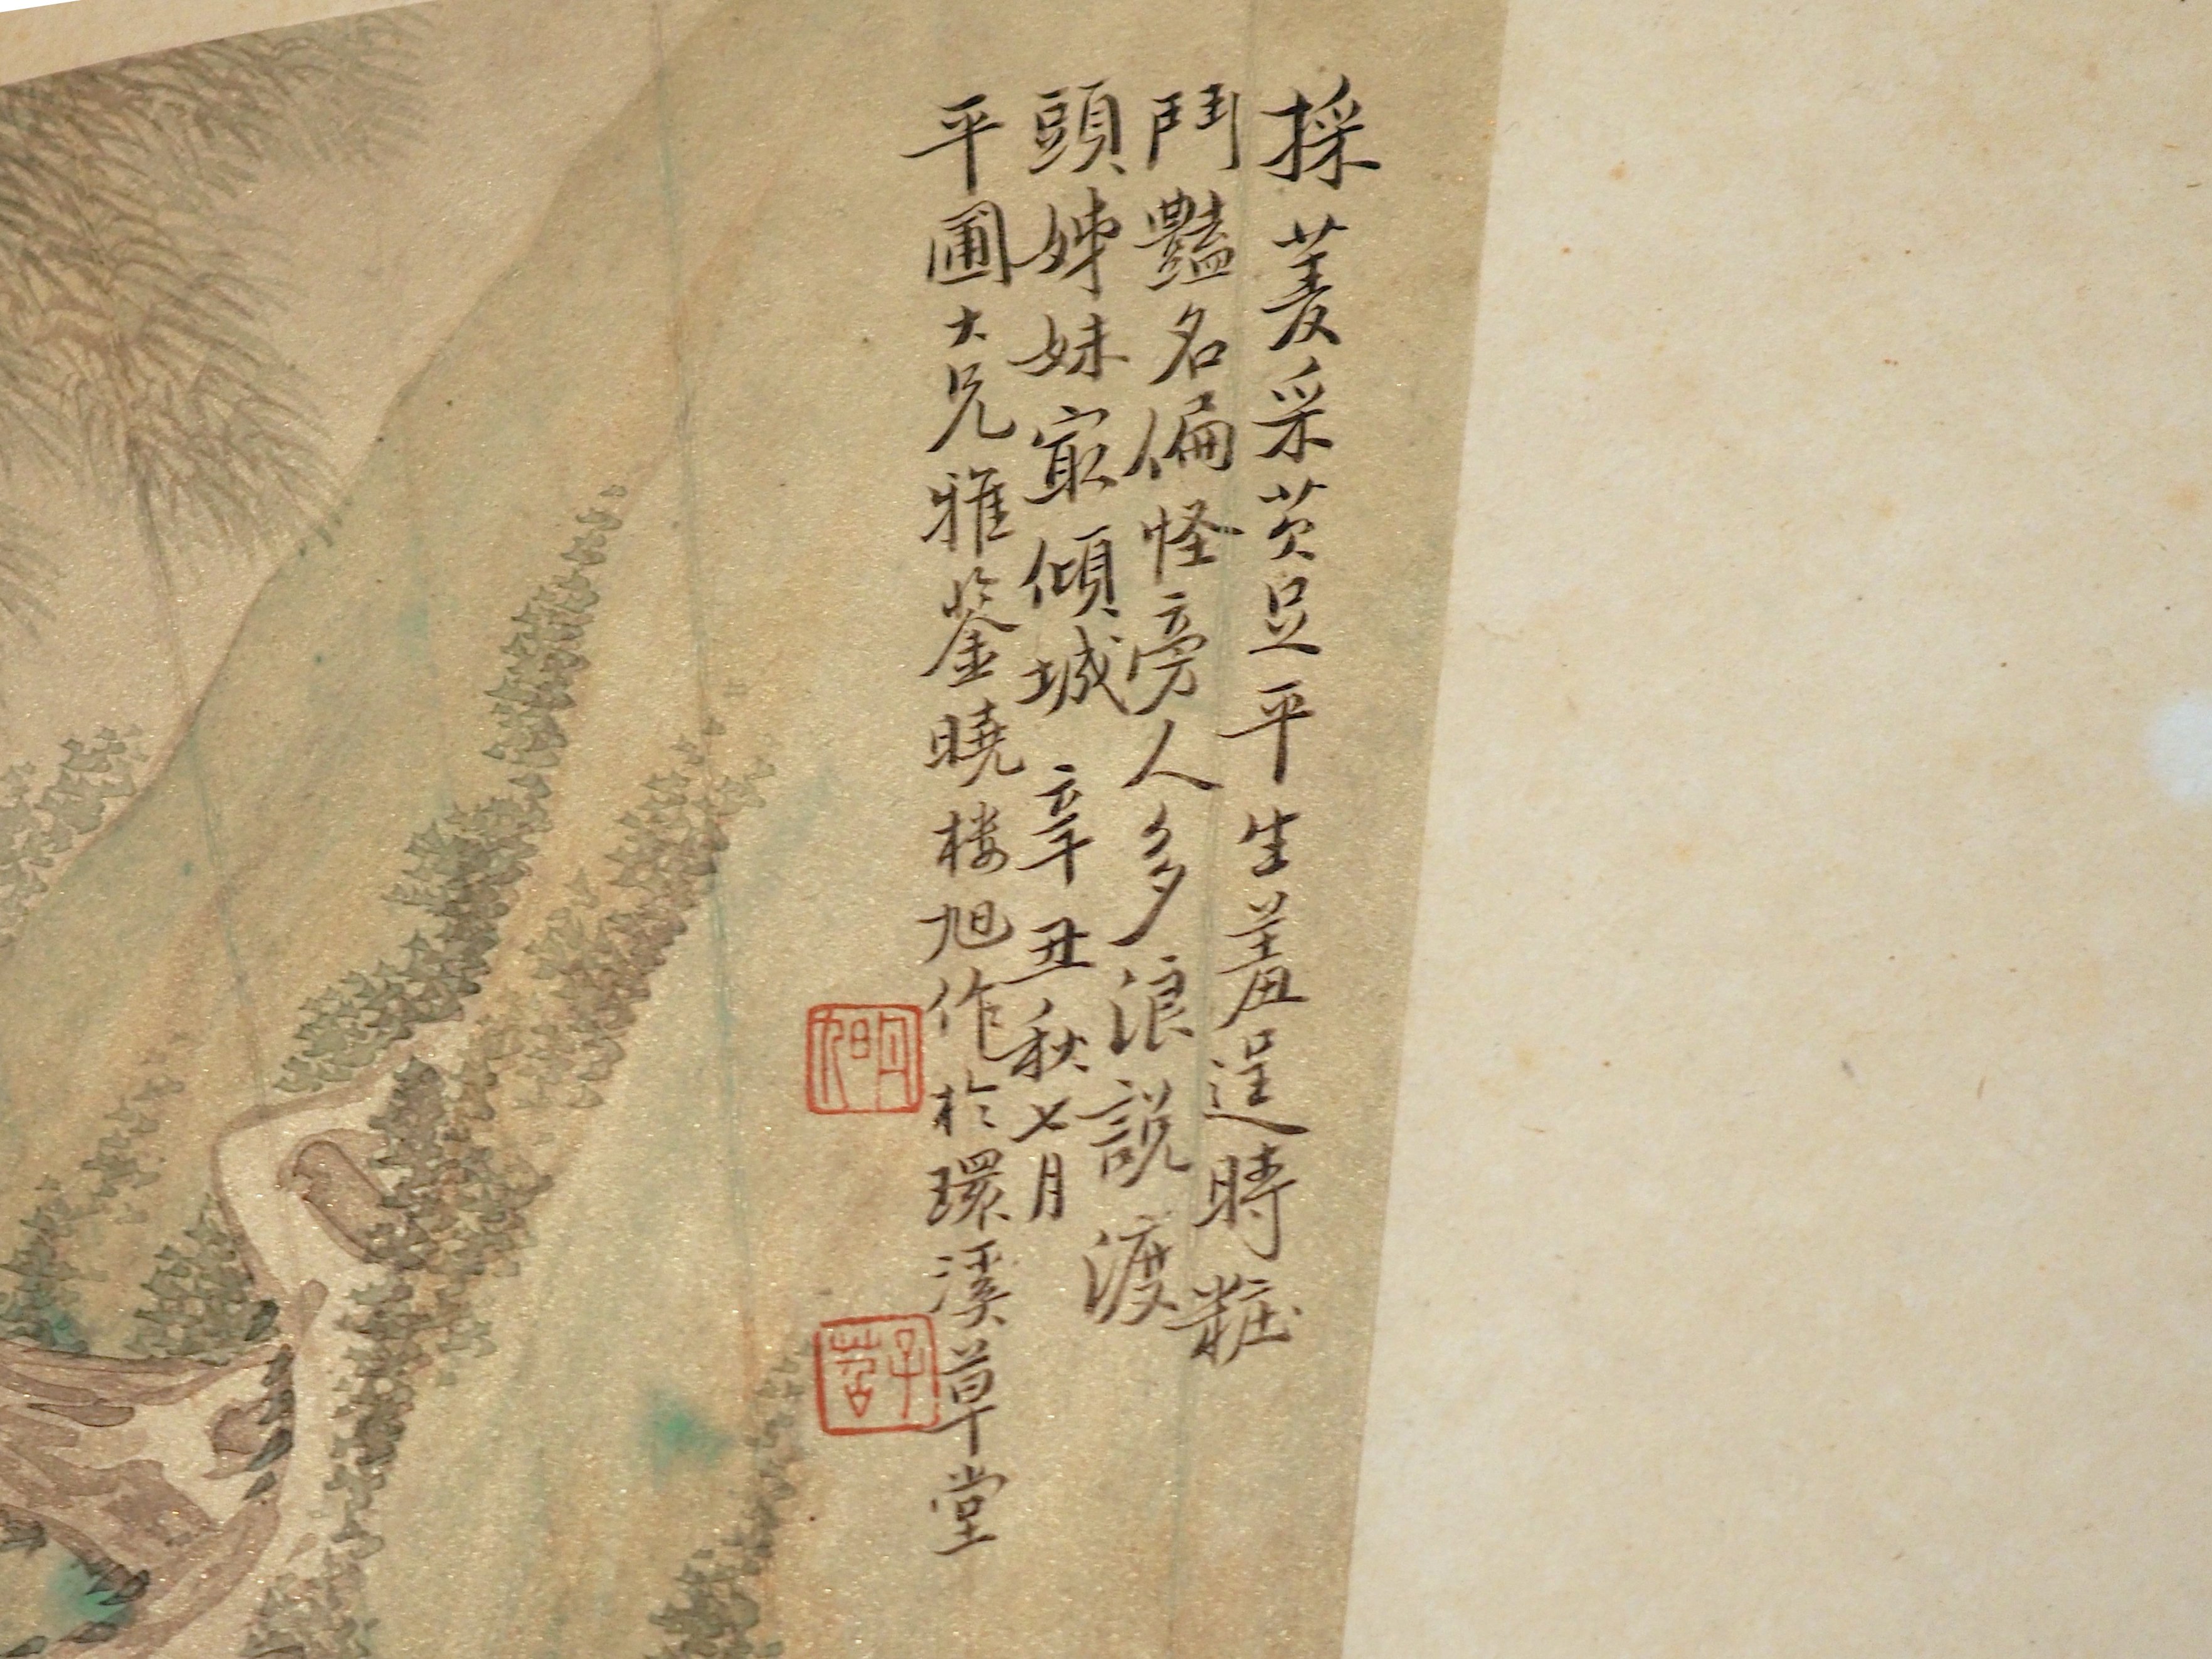 採菱采芡足平生羞逞時粧
鬥豔名偏怪旁人多浪說渡
頭姊妹寂傾城 辛丑秋七月
平圃大兄雅鉴曉楼旭作於環溪草堂
子苕